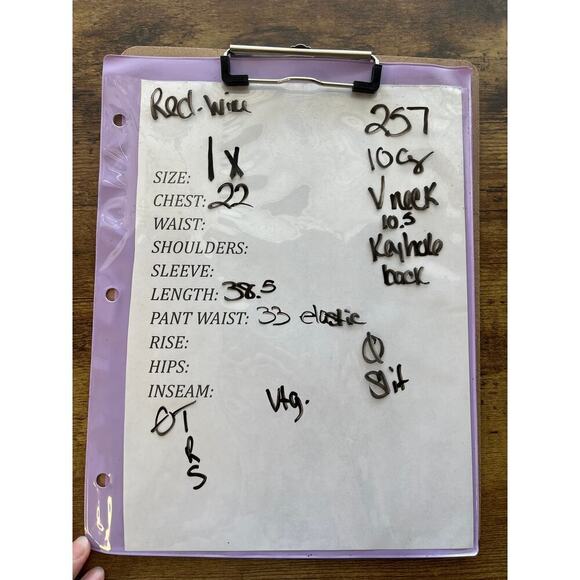 Red-Wine
257
SIZE: 1X
10
CHEST: 22
V neck
10.5
WAIST:
SHOULDERS:
Keyhole
back
SLEEVE:
LENGTH: 38.5
PANT WAIST: 33 elastic
RISE:
HIPS:
Slit
INSEAM:
Vtg.
T
R
S